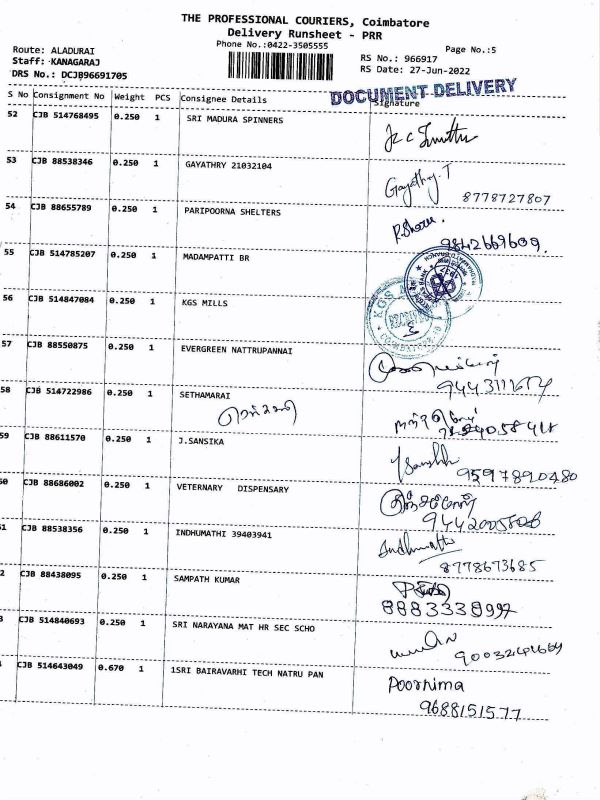 THE PROFESSIONAL COURIERS, Coimbatore
Delivery Runsheet - PRR
Phone No.:0422-3505555
Page No.:5
Route: ALADURAI
Staff: KANAGARAJ
DRS No.: DCJB96691705
RS No.: 966917
RS Date: 27-Jun-2022
DOCUMENT DELIVERY
S No Consignment No Weight PCS Consignee Details Signature
52 CJB 514768495 0.250 1 SRI MADURA SPINNERS
53 CJB 88538346 0.250 1 GAYATHRY 21032104 Gayathry.T 8778727807
54 CJB 88655789 0.250 1 PARIPOORNA SHELTERS 9842669609.
55 CJB 514785207 0.250 1 MADAMPATTI BR
56 CJB 514847084 0.250 1 KGS MILLS
57 CJB 88550875 0.250 1 EVERGREEN NATTRUPANNAI
58 CJB 514722986 0.250 1 SETHAMARAI
59 CJB 88611570 0.250 1 J.SANSIKA 9597890480
60 CJB 88686002 0.250 1 VETERNARY DISPENSARY
51 CJB 88538356 0.250 1 INDHUMATHI 39403941 Indhumathi 8778673685
2 CJB 88438095 0.250 1 SAMPATH KUMAR
3 CJB 514840693 0.250 1 SRI NARAYANA MAT HR SEC SCHO
CJB 514643049 0.670 1 1SRI BAIRAVARHI TECH NATRU PAN Poornima 9688151577